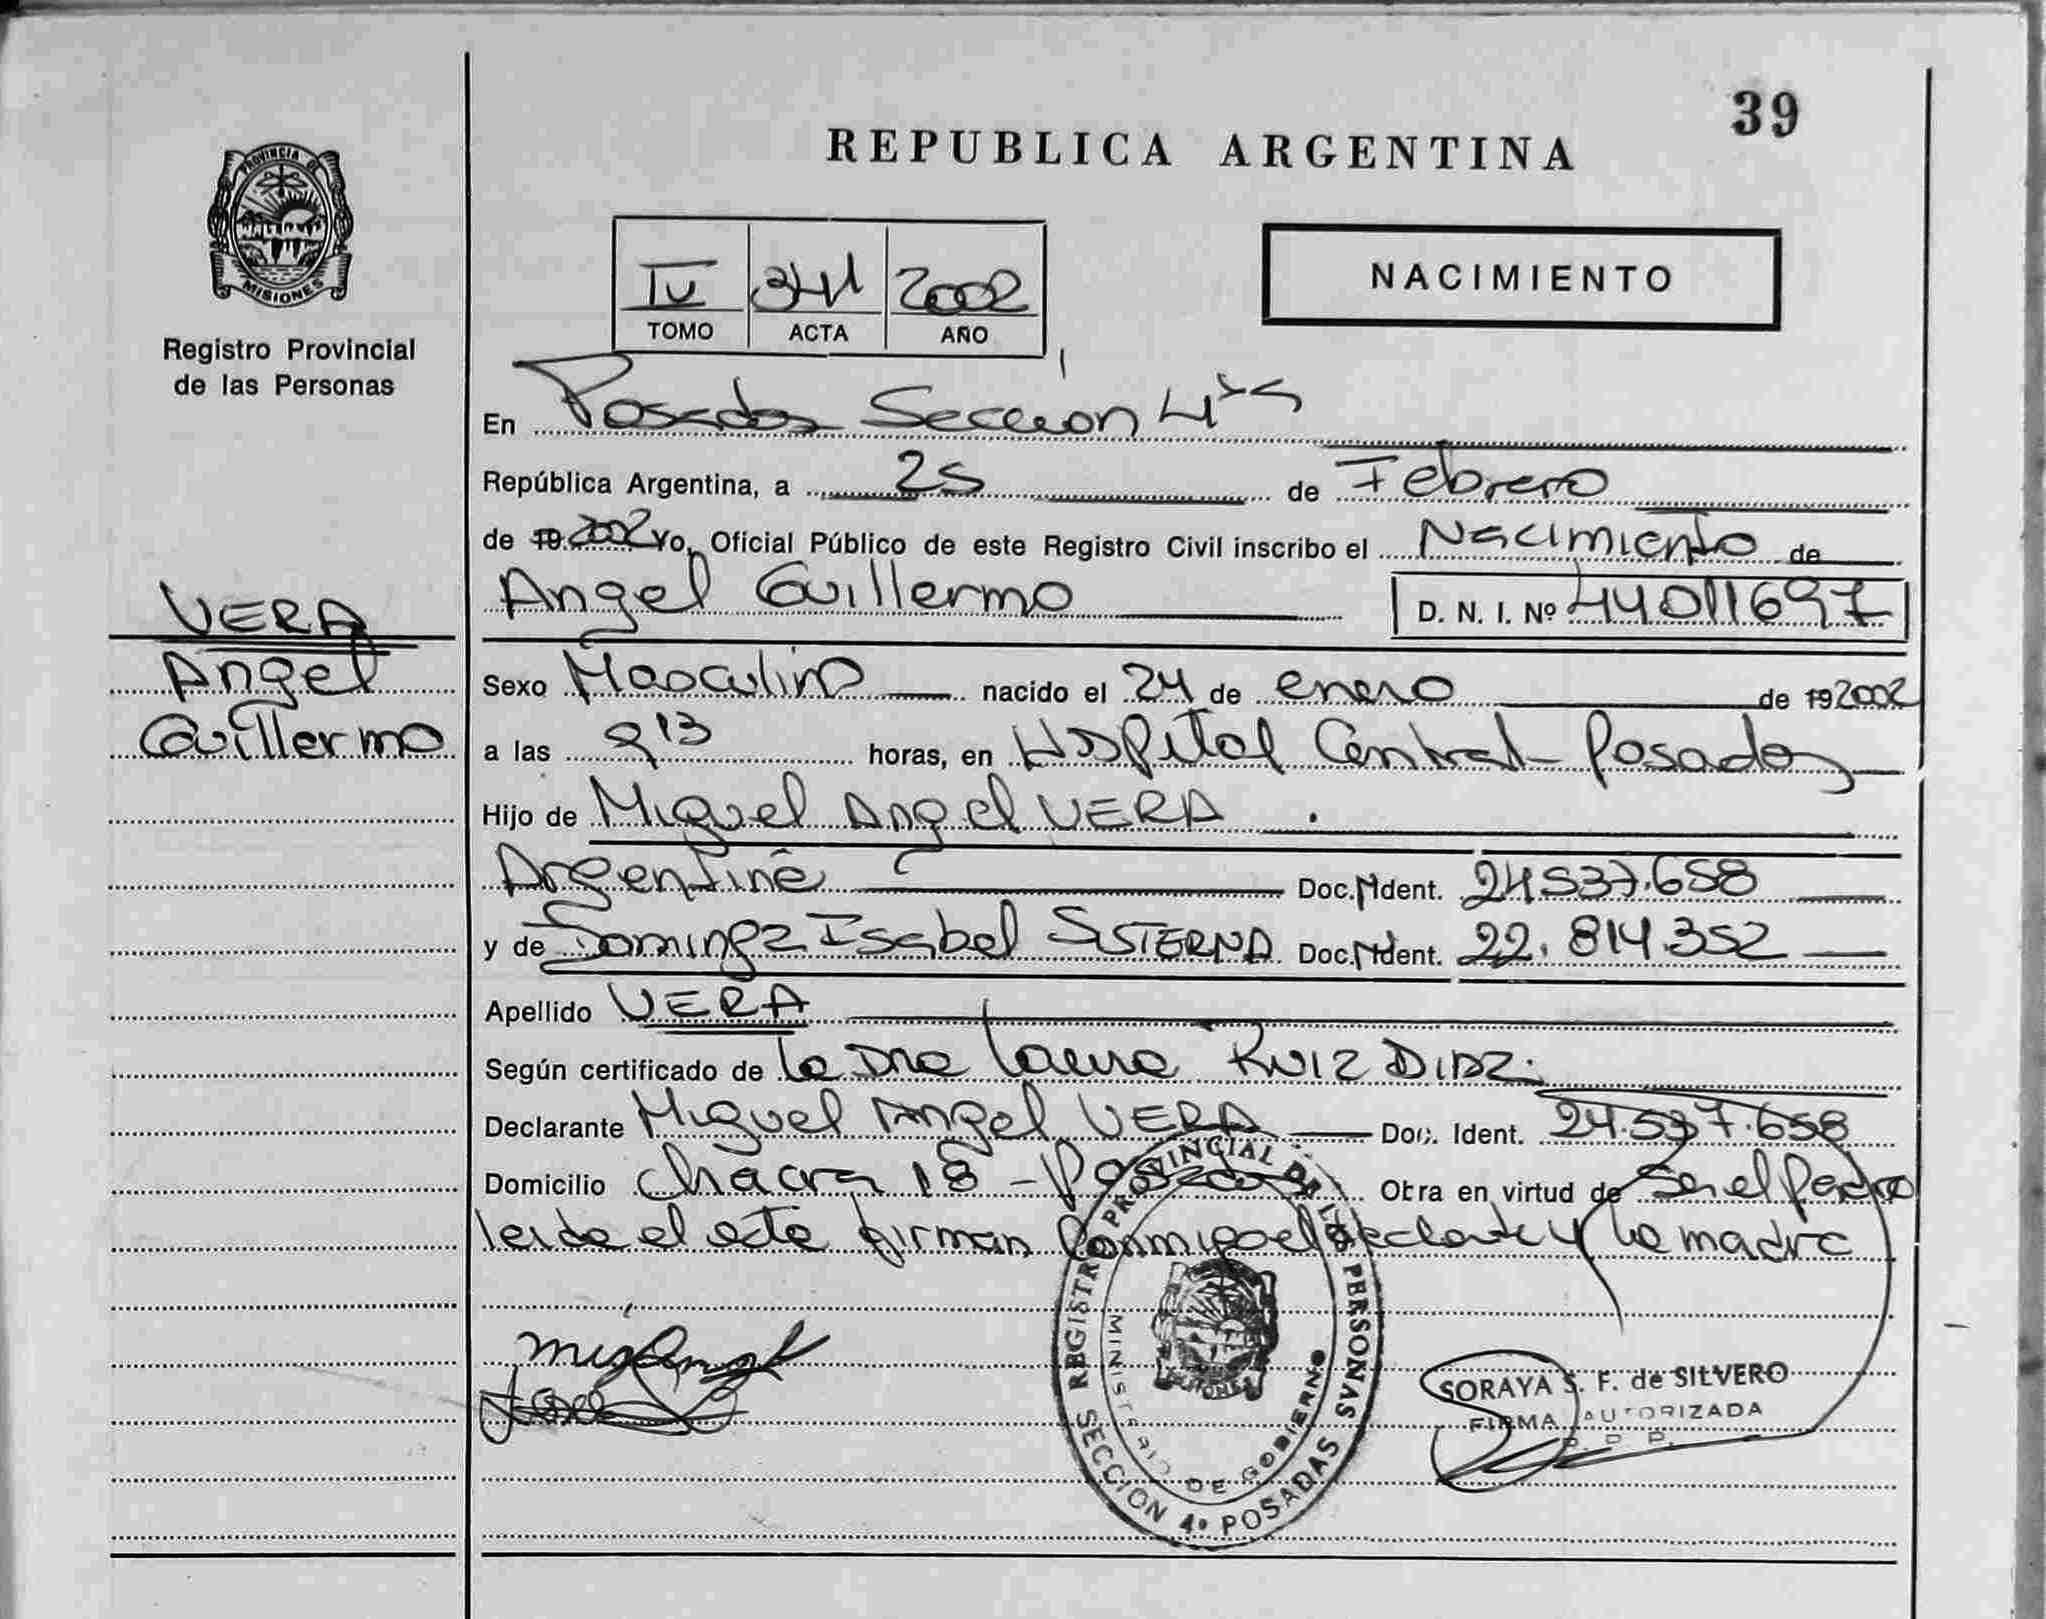 39
REPUBLICA ARGENTINA
PROVINCIA DE
MISIONES
Registro Provincial
de las Personas
NACIMIENTO
IV 341 2002
TOMO ACTA AÑO
En Posadas Sección 4ta
República Argentina, a 25 de Febrero
de 19 2002 Yo, Oficial Público de este Registro Civil inscribo el Nacimiento de
Angel Guillermo D. N. I. Nº 44011697
VERA
Angel
Guillermo
Sexo Masculino nacido el 24 de enero de 19 2002
a las 9 13 horas, en Hospital Central - Posadas
Hijo de Miguel Angel VERA
Argentine Doc. Ident. 24.537.658
y de Dominga Isabel SISTERNA Doc. Ident. 22.814.352
Apellido VERA
Según certificado de la Dra Laura RUIZ DIAZ.
Declarante Miguel Angel VERA Doc. Ident. 24.537.658
Domicilio Chacra 18 - Posadas Obra en virtud de Ser el Padre
leida el acta firman conmigo el declarante y la madre
REGISTRO PROVINCIAL DE LAS PERSONAS
MINISTERIO DE GOBIERNO
MISIONES
SECCION 4ª POSADAS
SORAYA S. F. de SILVERO
FIRMA AUTORIZADA